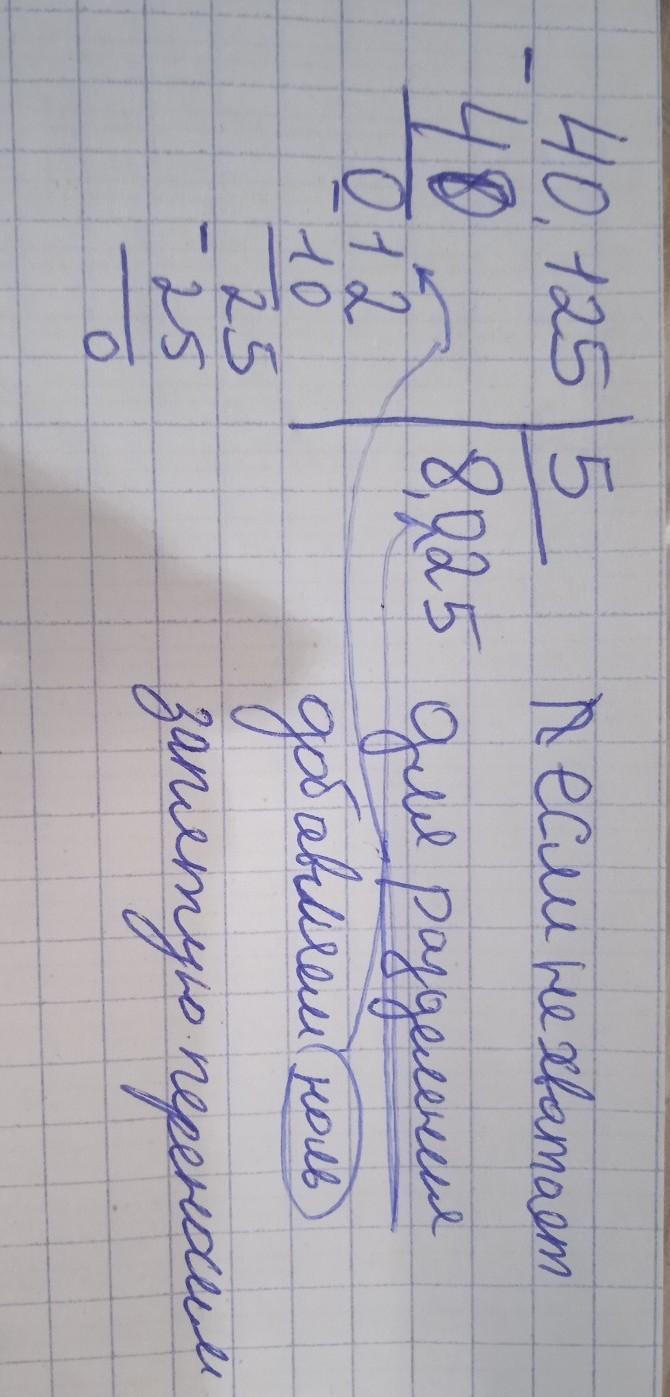 - 40,125 | 5
40 8,025
- 012
10
- 25
25
0
если не хватает
для разделения
добавляем ноль
запятую переносим